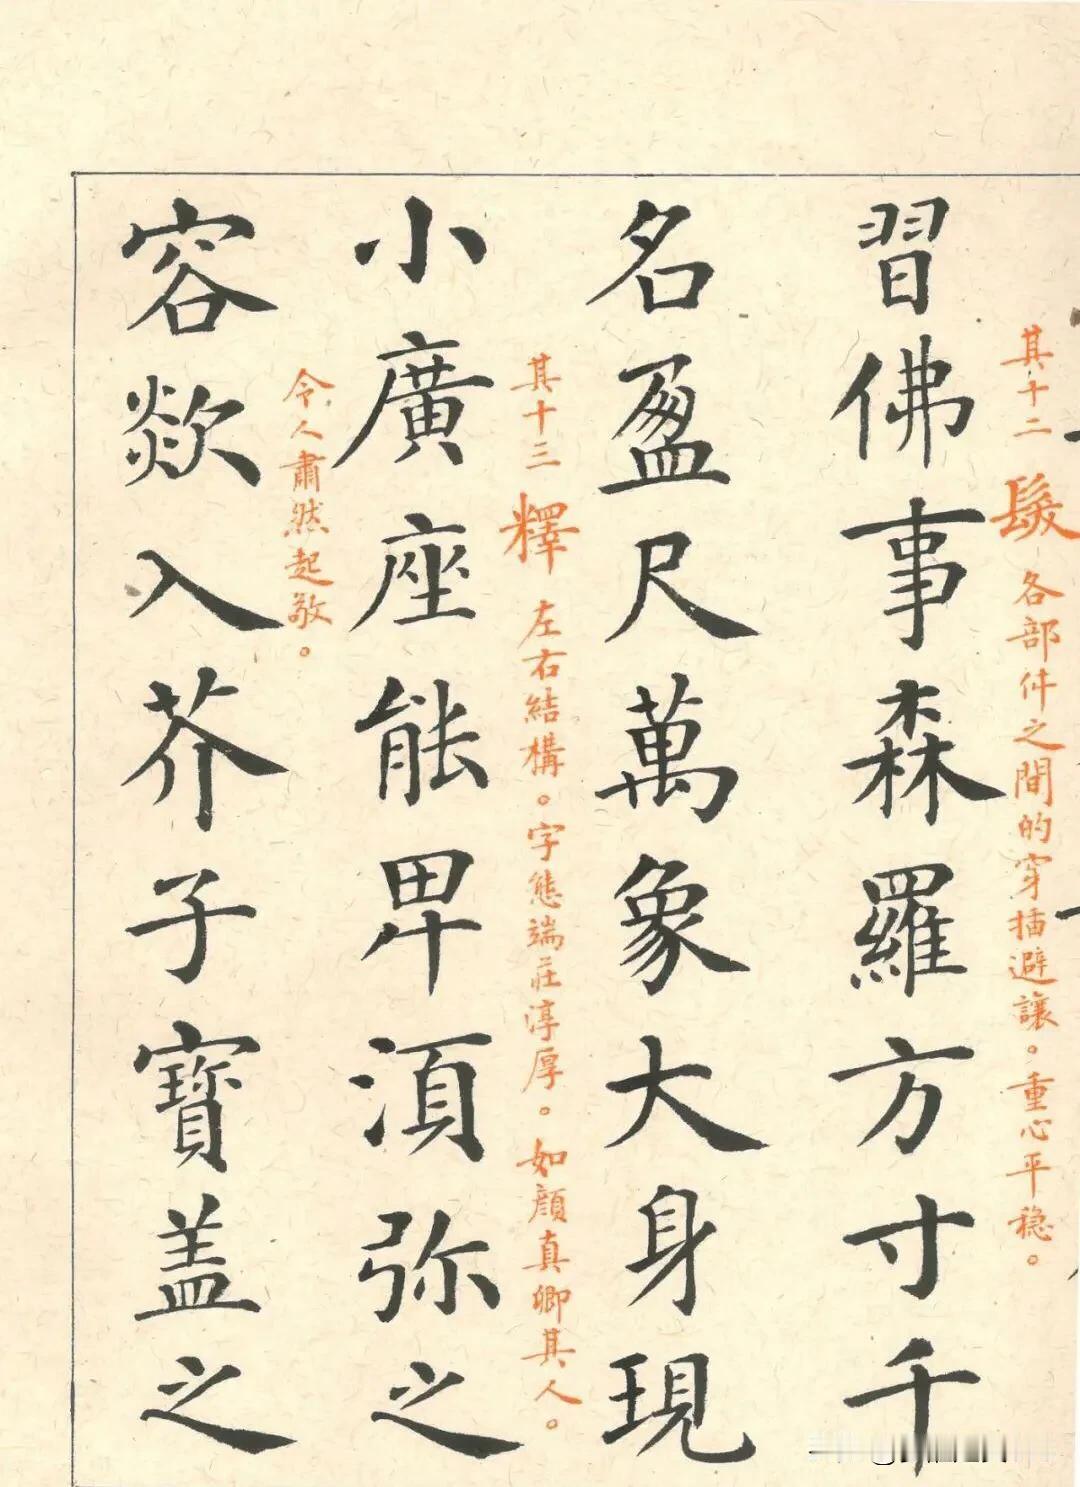 其十二 髮 各部件之間的穿插避讓。重心平稳。
習佛事森羅方寸千
名盈尺萬象大身現
其十三 釋 左右結構。字態端莊淳厚。如顔真卿其人。
小廣座能卑湏弥之
令人肅然起敬。
容欻入芥子寶盖之